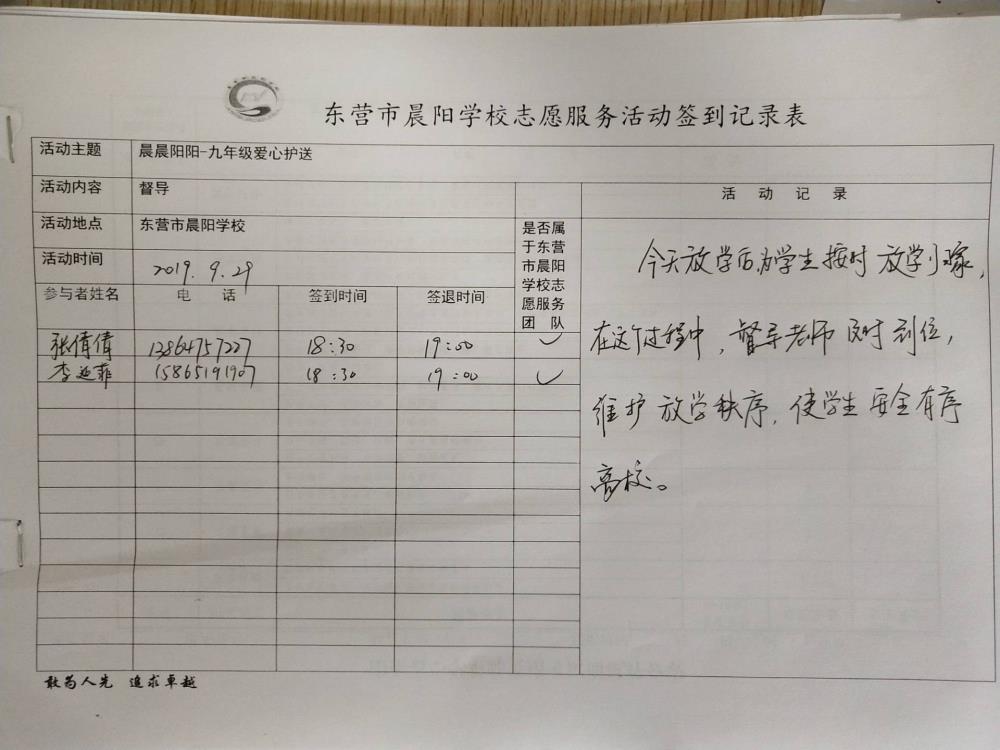 东营市晨阳学校志愿服务活动签到记录表
活动主题 晨晨阳阳-九年级爱心护送
活动内容 督导
活动地点 东营市晨阳学校
活动时间 2019.9.29
参与者姓名 电 话 签到时间 签退时间
是否属
于东营
市晨阳
学校志
愿服务
团 队
张倩倩 13864757227 18:30 19:00 ✓
李延菲 15865191907 18:30 19:00 ✓
活 动 记 录
今天放学后,学生按时放学回家,
在这个过程中,督导老师及时到位,
维护放学秩序,使学生安全有序
离校。
敢为人先 追求卓越